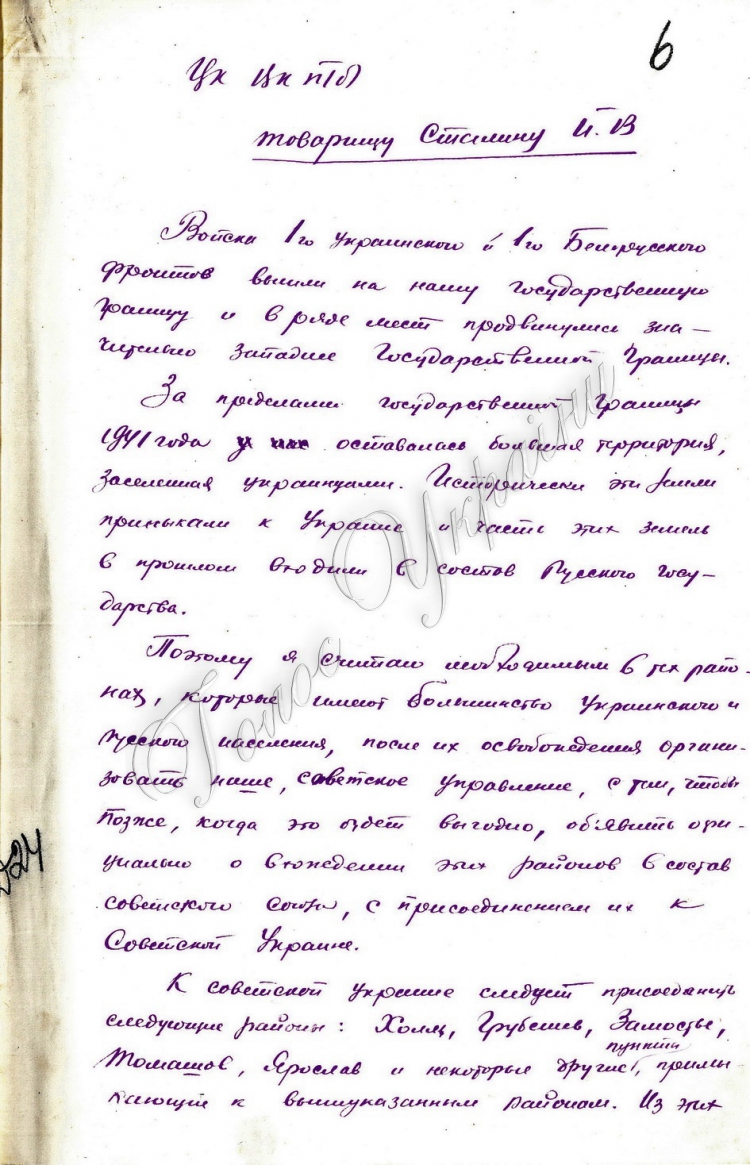 6
ЦК ЦК П(б)
товарищу Сталину И.В
Войска 1го Украинского и 1го Белорусского
фронтов вышли на нашу государственную
границу и в ряде мест продвинулись зна–
чительно западнее Государственной Границы.
За пределами государственной границы
1941 года у нас оставалась большая территория,
заселенная украинцами. Исторически эти земли
примыкали к Украине и часть этих земель
в прошлом входили в состав Русского госу–
дарства.
Поэтому я считаю необходимым в тех райо–
нах, которые имеют большинство Украинского и
Русского населения, после их освобождения органи–
зовать наше, советское управление, с тем, чтобы
позже, когда это будет выгодно, об'явить офи–
циально о вхождении этих районов в состав
советского союза, с присоединением их к
Советской Украине.
К советской украине следует присоеданить
следующие районы: Холм, Грубешев, Замостье,
пункты
Томашов, Ярослав и некоторые другие, примы
кающие к вышуказанным районам. Из этих
24
Голос України